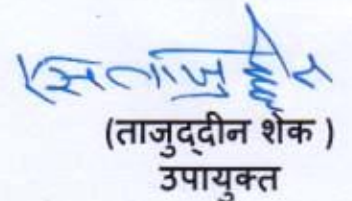 (ताजुद्दीन शेक )
उपायुक्त